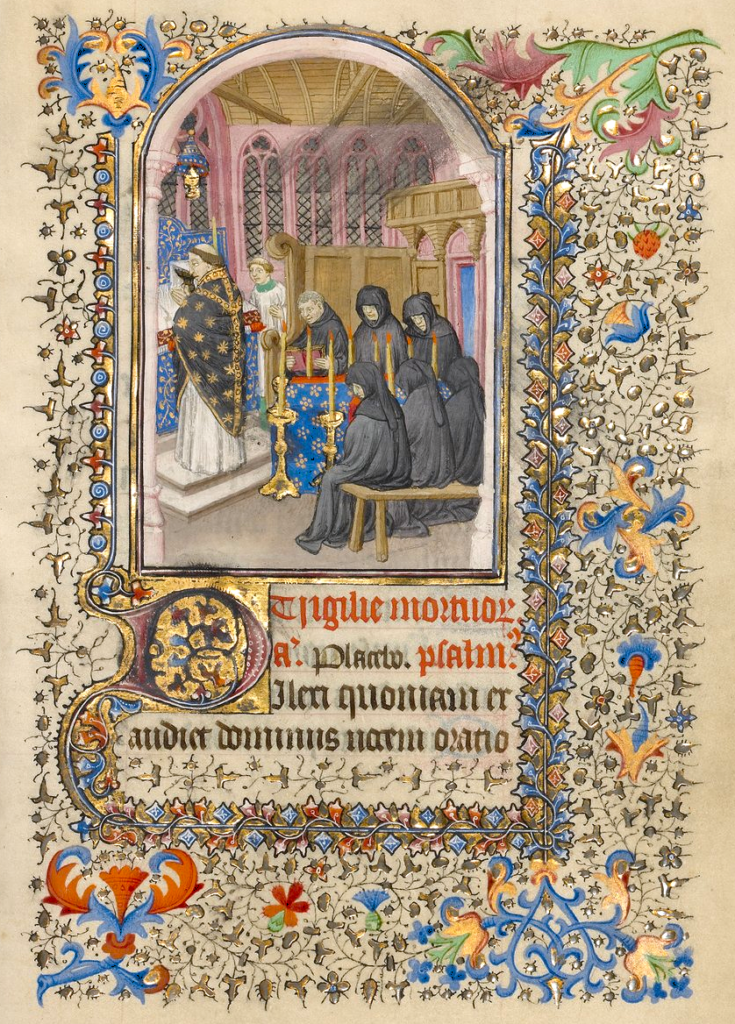 Vigilie mortuor
a. Placebo. psalm
Dilexi quoniam ex
audiet dominus vocem oratio